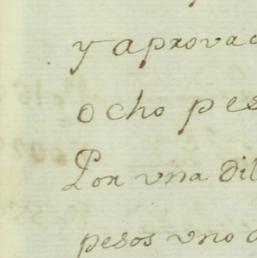 y aprovac
ocho pes
Por vna dil
pesos vno